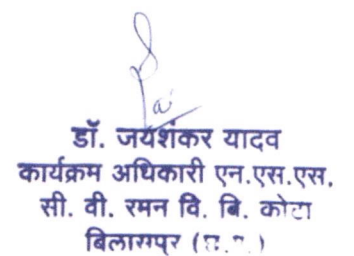 डॉ. जयशंकर यादव
कार्यक्रम अधिकारी एन.एस.एस.
सी. वी. रमन वि. बि. कोटा
बिलासपुर